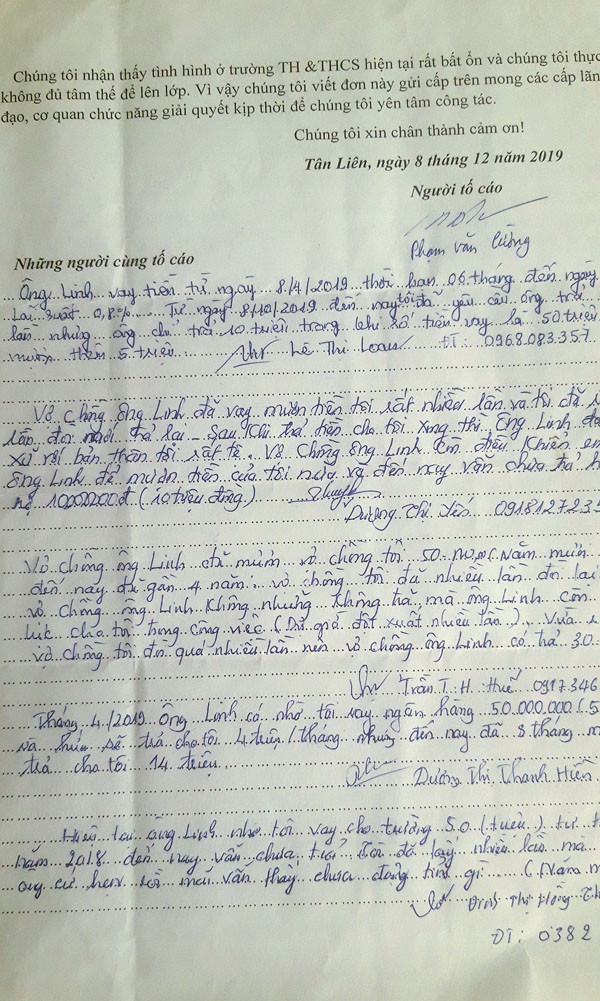 Chúng tôi nhận thấy tình hình ở trường TH &THCS hiện tại rất bất ổn và chúng tôi thực
không đủ tâm thế để lên lớp. Vì vậy chúng tôi viết đơn này gửi cấp trên mong các cấp lãn
đạo, cơ quan chức năng giải quyết kịp thời để chúng tôi yên tâm công tác.
Chúng tôi xin chân thành cảm ơn!
Tân Liên, ngày 8 tháng 12 năm 2019
Người tố cáo
Phạm Văn Cường
Những người cùng tố cáo
Ông Linh vay tiền từ ngày 8/4/2019 thời hạn 06 tháng đến ngày
Lãi suất 0,8%. Từ ngày 8/10/2019 đến nay tôi đã yêu cầu ông trả
lần nhưng ông chỉ trả 10 triệu trong khi số tiền vay là 50 triệu
mượn thêm 5 triệu Lê Thị Loan ĐT: 0968.083.357
Vợ chồng ông Linh đã vay mượn tiền tôi rất nhiều lần và tôi đã
lần đòi mới trả lại. Sau khi trả tiền cho tôi xong thì ông Linh đ
xử với bản thân tôi rất tệ. Vợ chồng ông Linh
ông Linh để mượn tiền của tôi nữa và đến nay vẫn chưa trả
nợ 10000000đ (10 triệu đồng)
Dương Thị Yến 091812723
Vợ chồng ông Linh đã mượn vợ chồng tôi 50 (Năm mươi
đến nay đã gần 4 năm, vợ chồng tôi đã nhiều lần đòi lại
vợ chồng ông Linh không những không trả, mà ông Linh còn
cho tôi trong công việc (Dự giờ đột xuất nhiều lần). Vừa
vợ chồng tôi đòi quá nhiều lần nên vợ chồng ông Linh có trả 30
Trần T. H. Huế 0917346
Tháng 4/2019 Ông Linh có nhờ tôi vay ngân hàng 50.000.000 (5
và hứa sẽ trả cho tôi 4 triệu/tháng nhưng đến nay đã 8 tháng m
trả cho tôi 14 triệu.
Dương Thị Thanh Hiền
Hiện tại ông Linh nhờ tôi vay cho trường 50 (triệu) từ t
năm 2018 đến nay vẫn chưa trả. Tôi đã nhiều lần mà
ông cứ hẹn rồi mãi vẫn thấy chưa động tĩnh gì (Năm m
Thị Hồng
ĐT: 0382